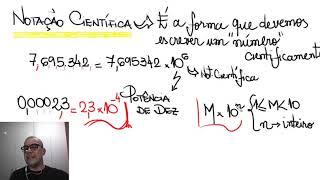 NOTAÇÃO CIENTÍFICA → É A forma que devemos
escrever um "número"
cientificamente
7,695.342 = 7,695342 × 10⁶
→ Not Científica
0,00023 = 2,3 × 10⁻⁴
POTÊNCIA
DE DEZ
M × 10ⁿ → 1 ≤ M < 10
n → inteiro